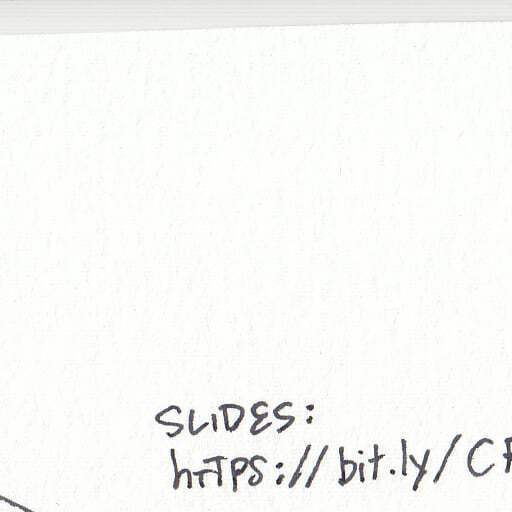 SLIDES:
https://bit.ly/C